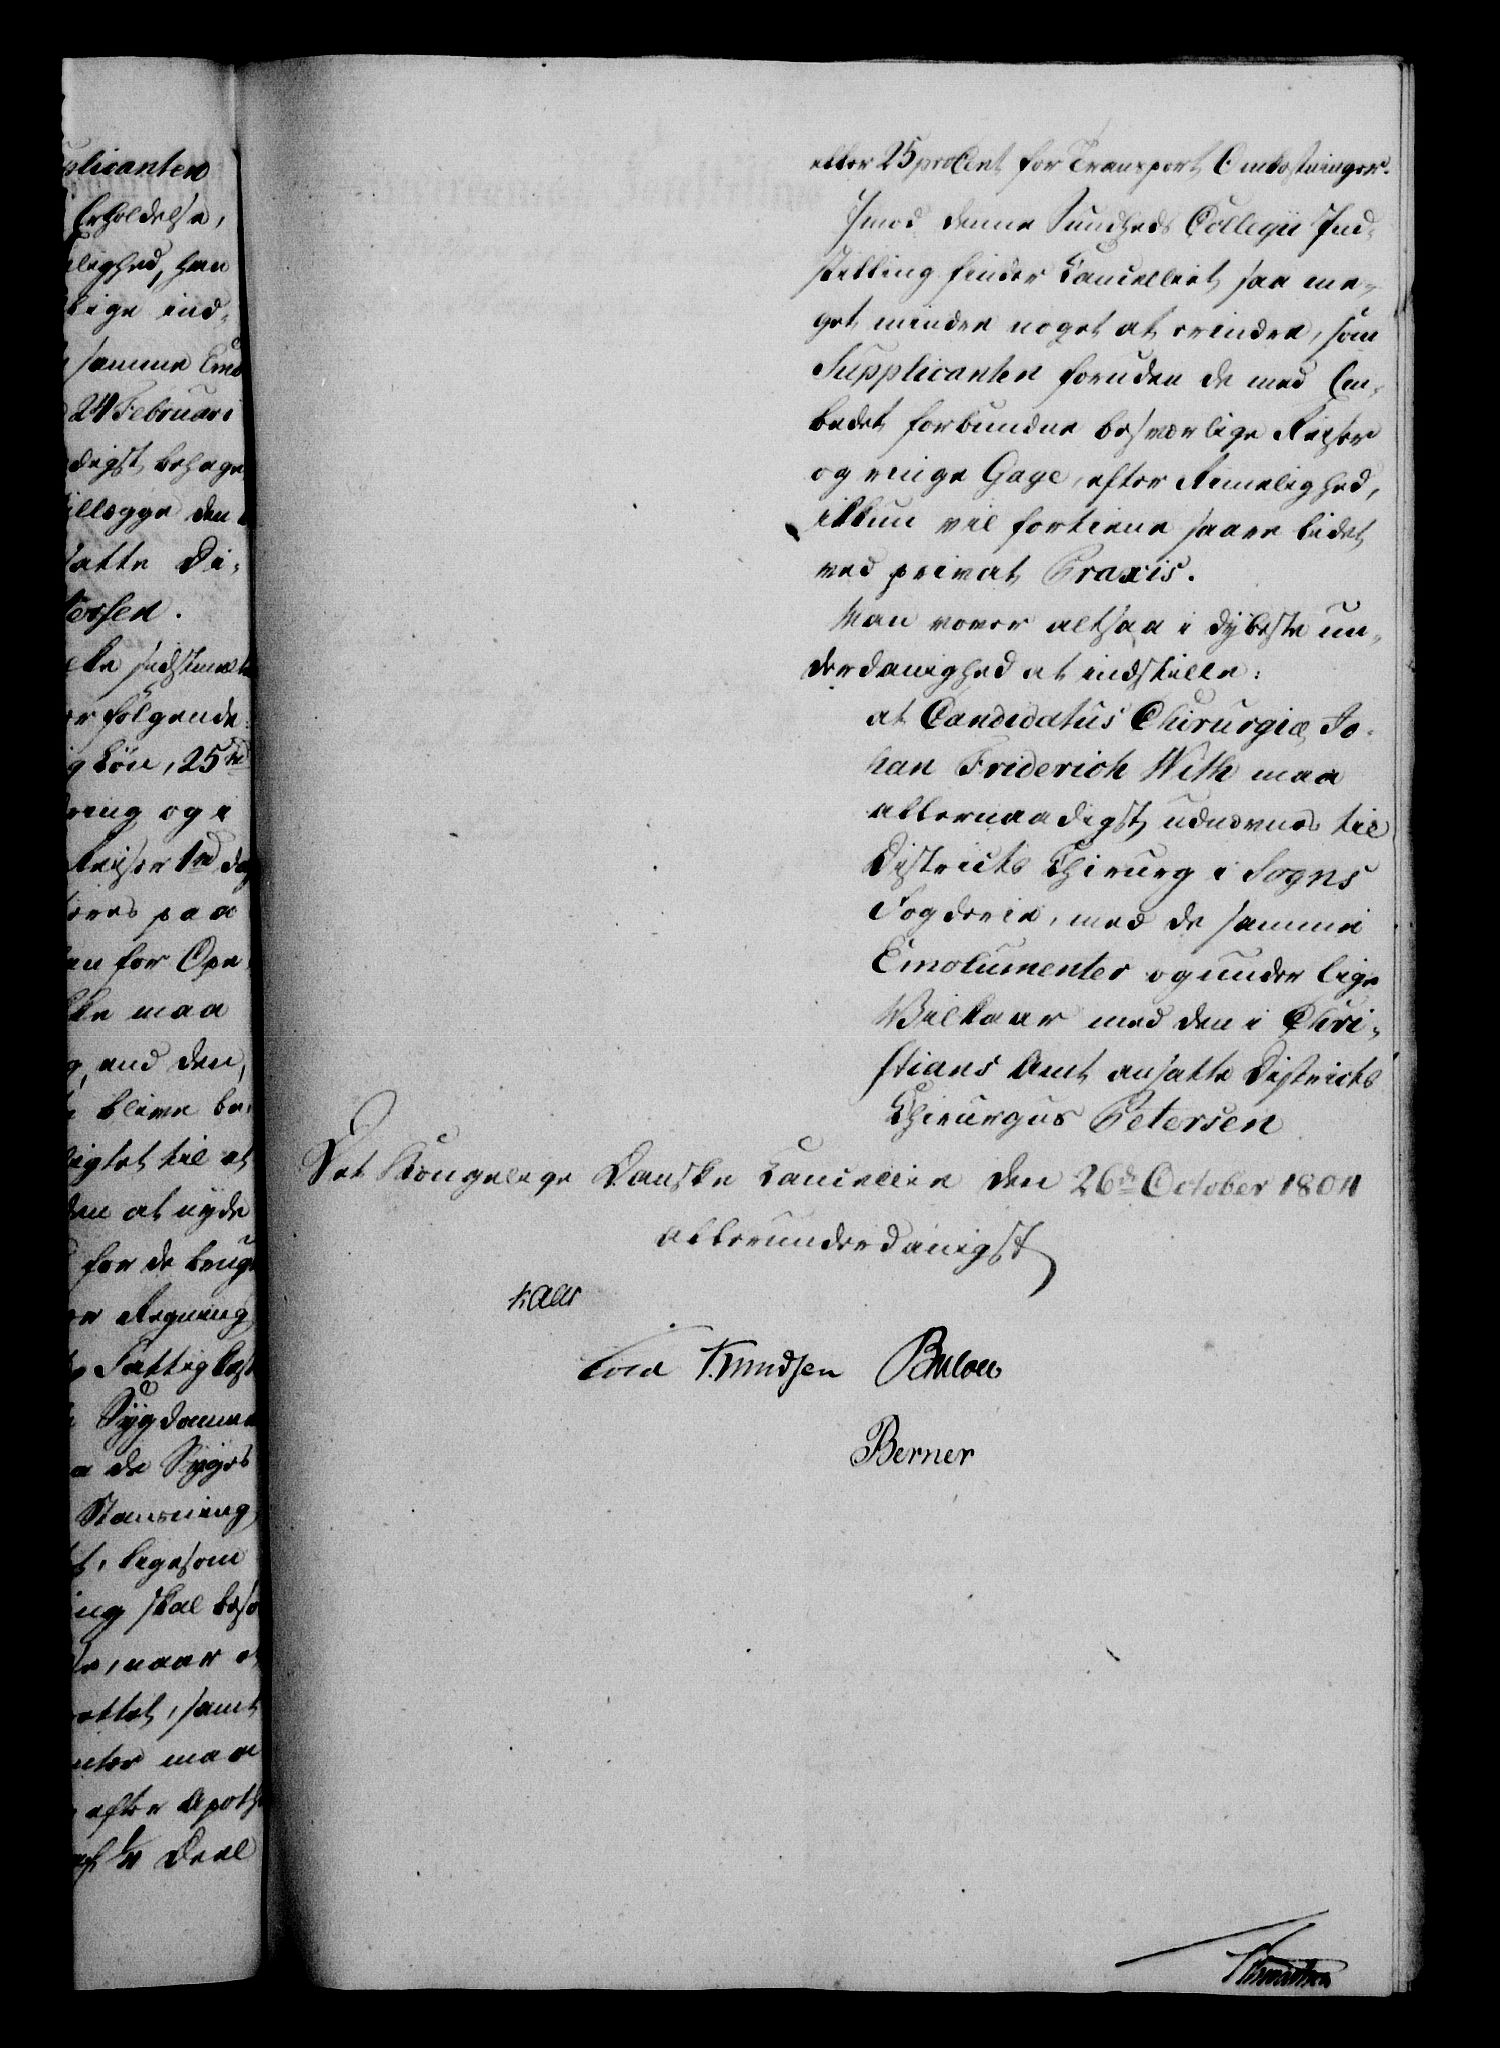 plicanten
Erholdelse,
lighed, han
lige ind-
samme Em
24 Februari
digst behage
illægge den
satte Di-
ersen.
or følgende:
g Løn, 25 rd
ring og i
Reiser 1 rd dag
eres paa
en for Ope-
kke maa
g, end den,
blive be-
ligtet til at
den at nyde
for de brug
or Regning
Fattigkass
Sygdomme
a de Syges
Stansning
t, ligesom
ing skal besø
le, naar et
ættet, samt
nter maa
efter Apoth
¼ Deel
eller 25 proCent for Transport Omkostninger.
Imod denne Sundheds Collegii Ind-
stilling finder Cancelliet saa me-
get mindre noget at erindre, som
Supplicanten foruden de med Em-
bedet forbundne besværlige Reiser
og ringe Gage, efter Rimelighed,
ikkun vil fortiene saare lidet
ved privat Praxis.
Man vover altsaa i dybeste un-
derdanighed at indstille:
at Candidatus Chirurgiæ Jo-
han Friderich With maa
allernaadigst udnævnes til
Districts Chirurg i Sogns
Fogderie, med de samme
Emolumenter og under lige
Vilkaar med den i Chri-
stians Amt ansatte Districts
Chirurgus Petersen
Det Kongelige Danske Cancellie den 26de October 1804
allerunderdanigst
Kaas
Cold Knudsen Bülow
Berner